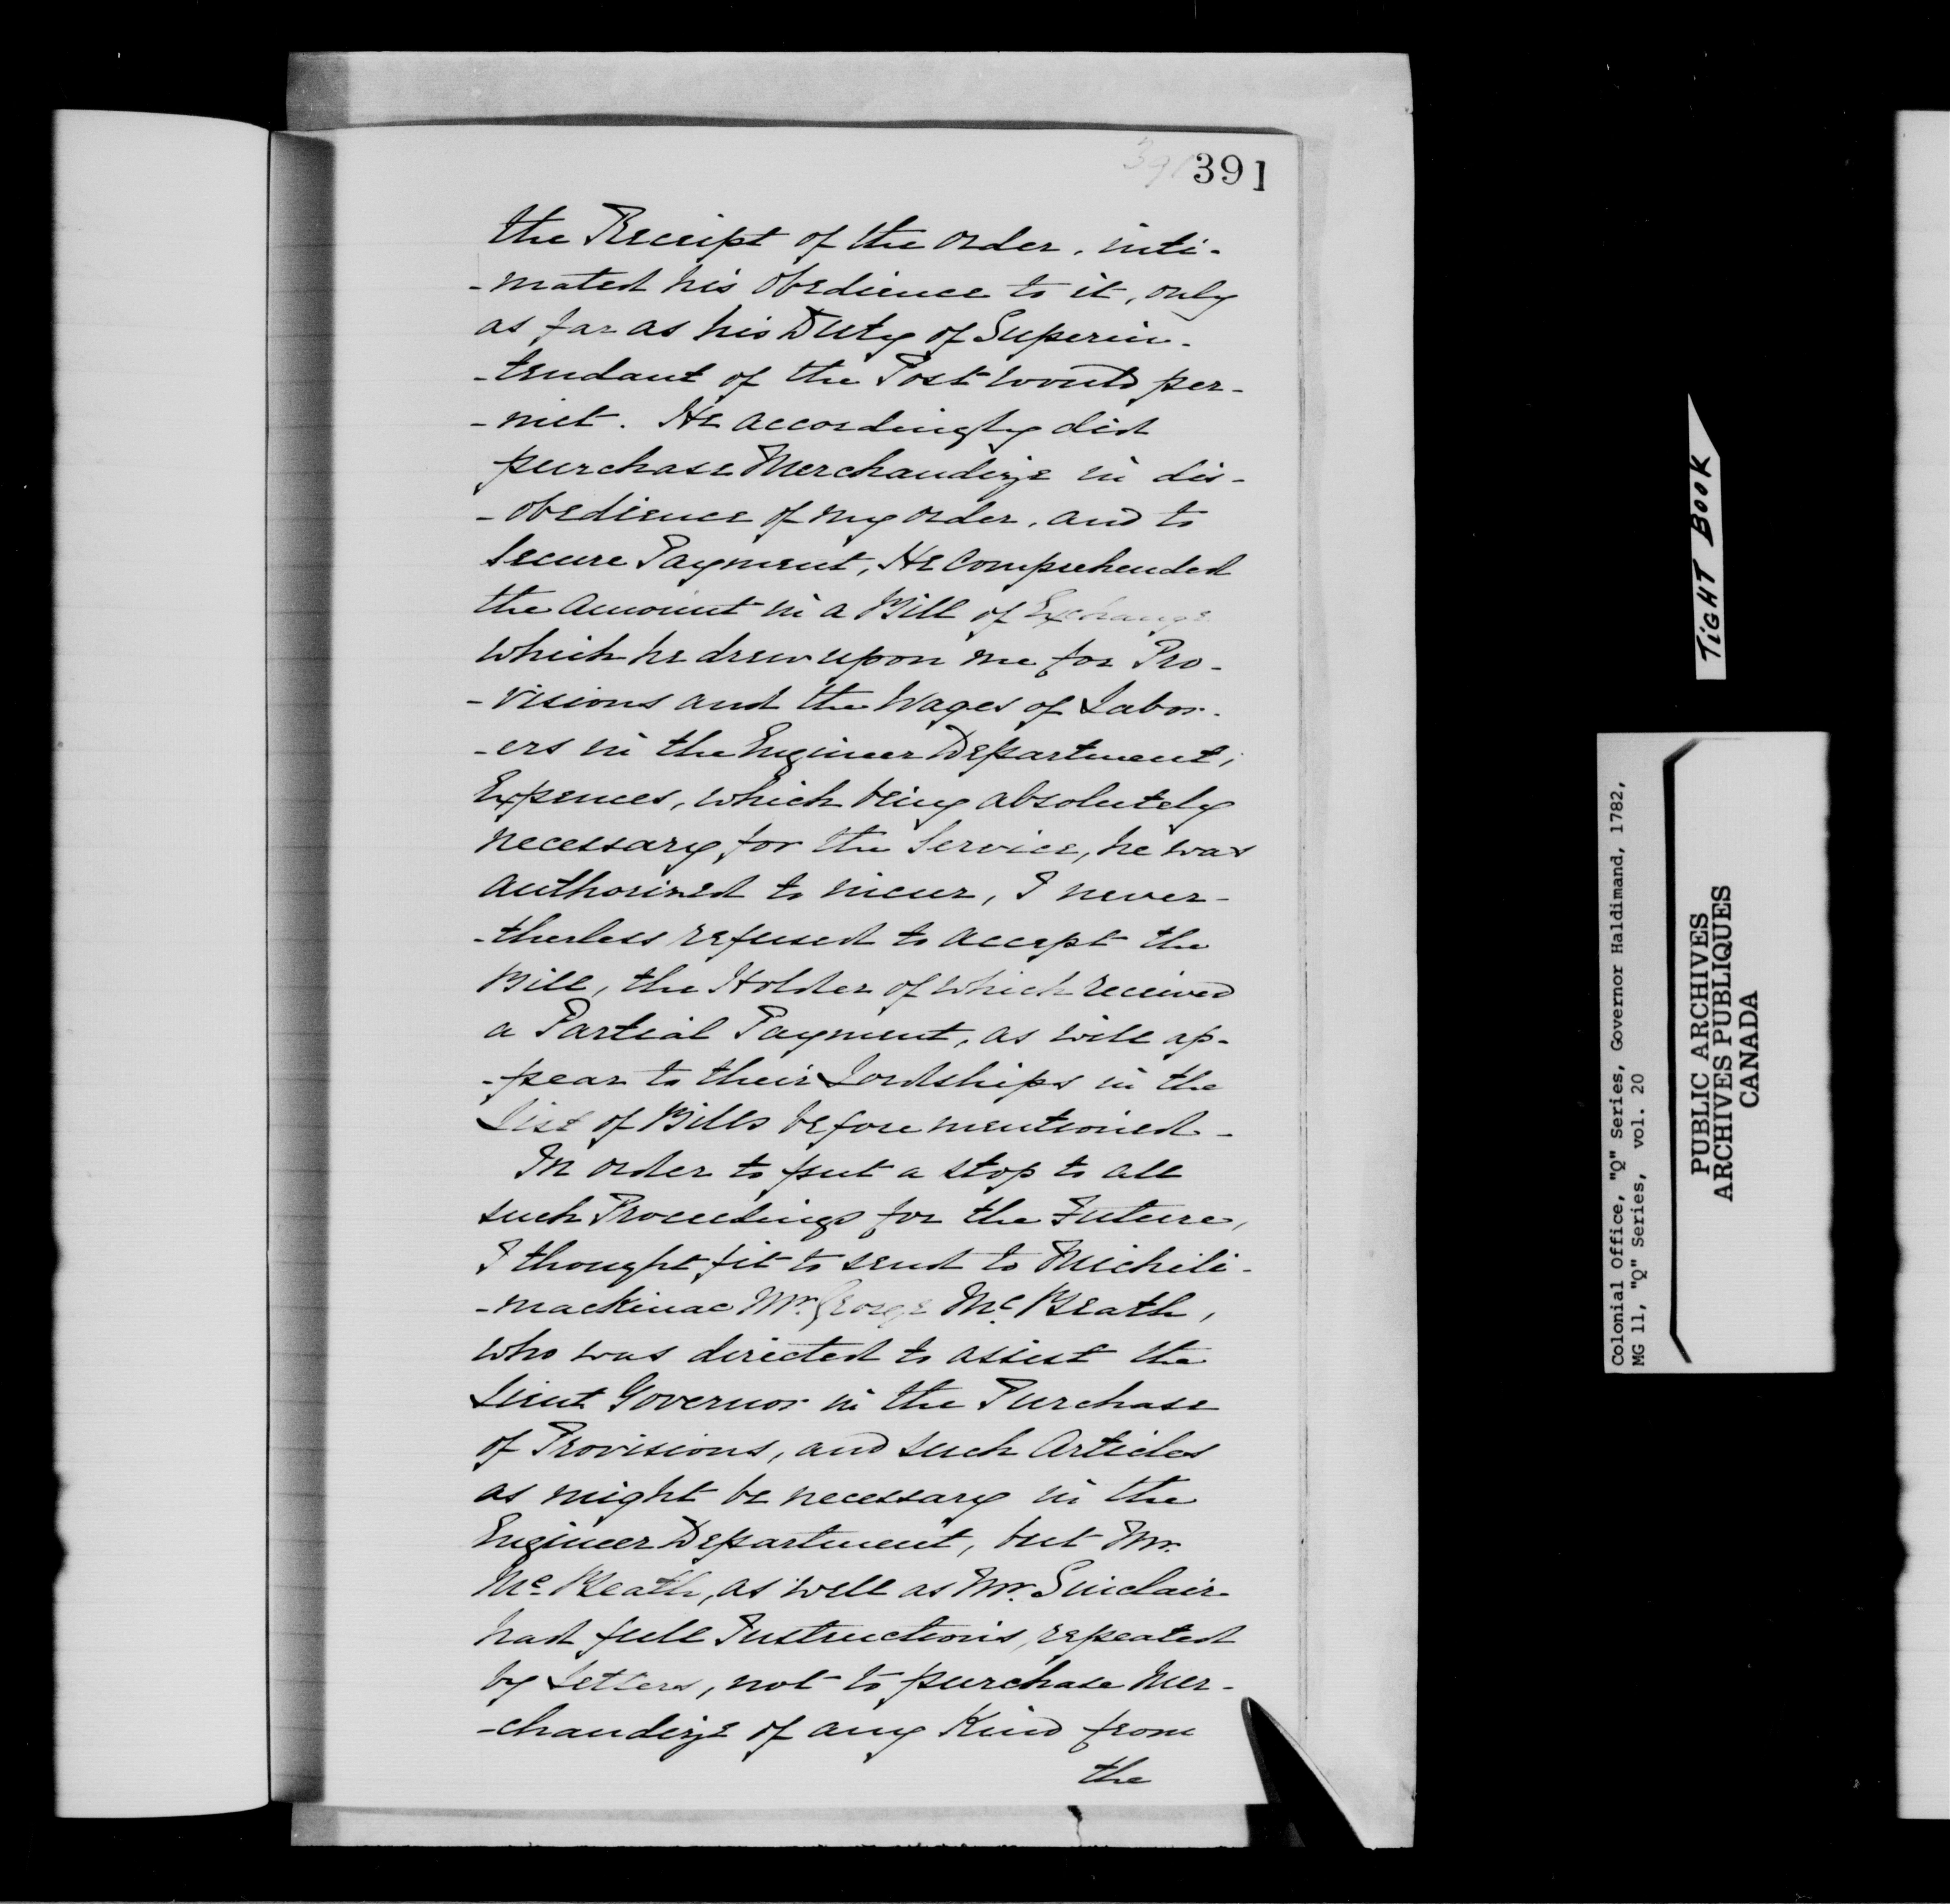 391
391
the Receipt of the order, inti-
-mated his obedience to it, only
as far as his Duty of Superin-
-tendant of the Post would per-
-mit. He accordingly did
purchase Merchandize in dis-
-obedience of my order, and to
secure Payment, He comprehended
the amount in a Bill of Exchange
which he drew upon me for Pro-
-visions and the Wages of Labor-
-ers in the Engineer Department;
Expences, which being absolutely
necessary for the Service, he was
authorized to incur, I never-
-theless refused to accept the
Bill, the Holder of which received
a Partial Payment, as will ap-
-pear to their Lordships in the
List of Bills before mentioned -
In order to put a stop to all
such Proceedings for the Future,
I thought fit to send to Michili-
-mackinac Mr. George Mc. Beath,
who was directed to assist the
Lieut Governor in the Purchase
of Provisions, and such Articles
as might be necessary in the
Engineer Department, but Mr.
Mc. Beath, as well as Mr. Sinclair
had full Instructions, repeated
by Letters, not to purchase Mer-
-chandize of any Kind from
the
TIGHT BOOK
Colonial Office, "Q" Series, Governor Haldimand, 1782,
MG 11, "Q" Series, vol. 20
PUBLIC ARCHIVES
ARCHIVES PUBLIQUES
CANADA